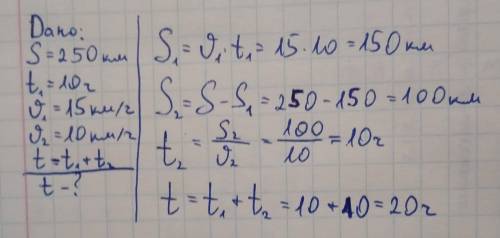 Дано:
S=250км
t₁=10г
ϑ₁=15км/г
ϑ₂=10км/г
t=t₁+t₂
t-?
S₁=ϑ₁·t₁=15·10=150км
S₂=S-S₁=250-150=100км
t₂=S₂/ϑ₂=100/10=10г
t=t₁+t₂=10+10=20г